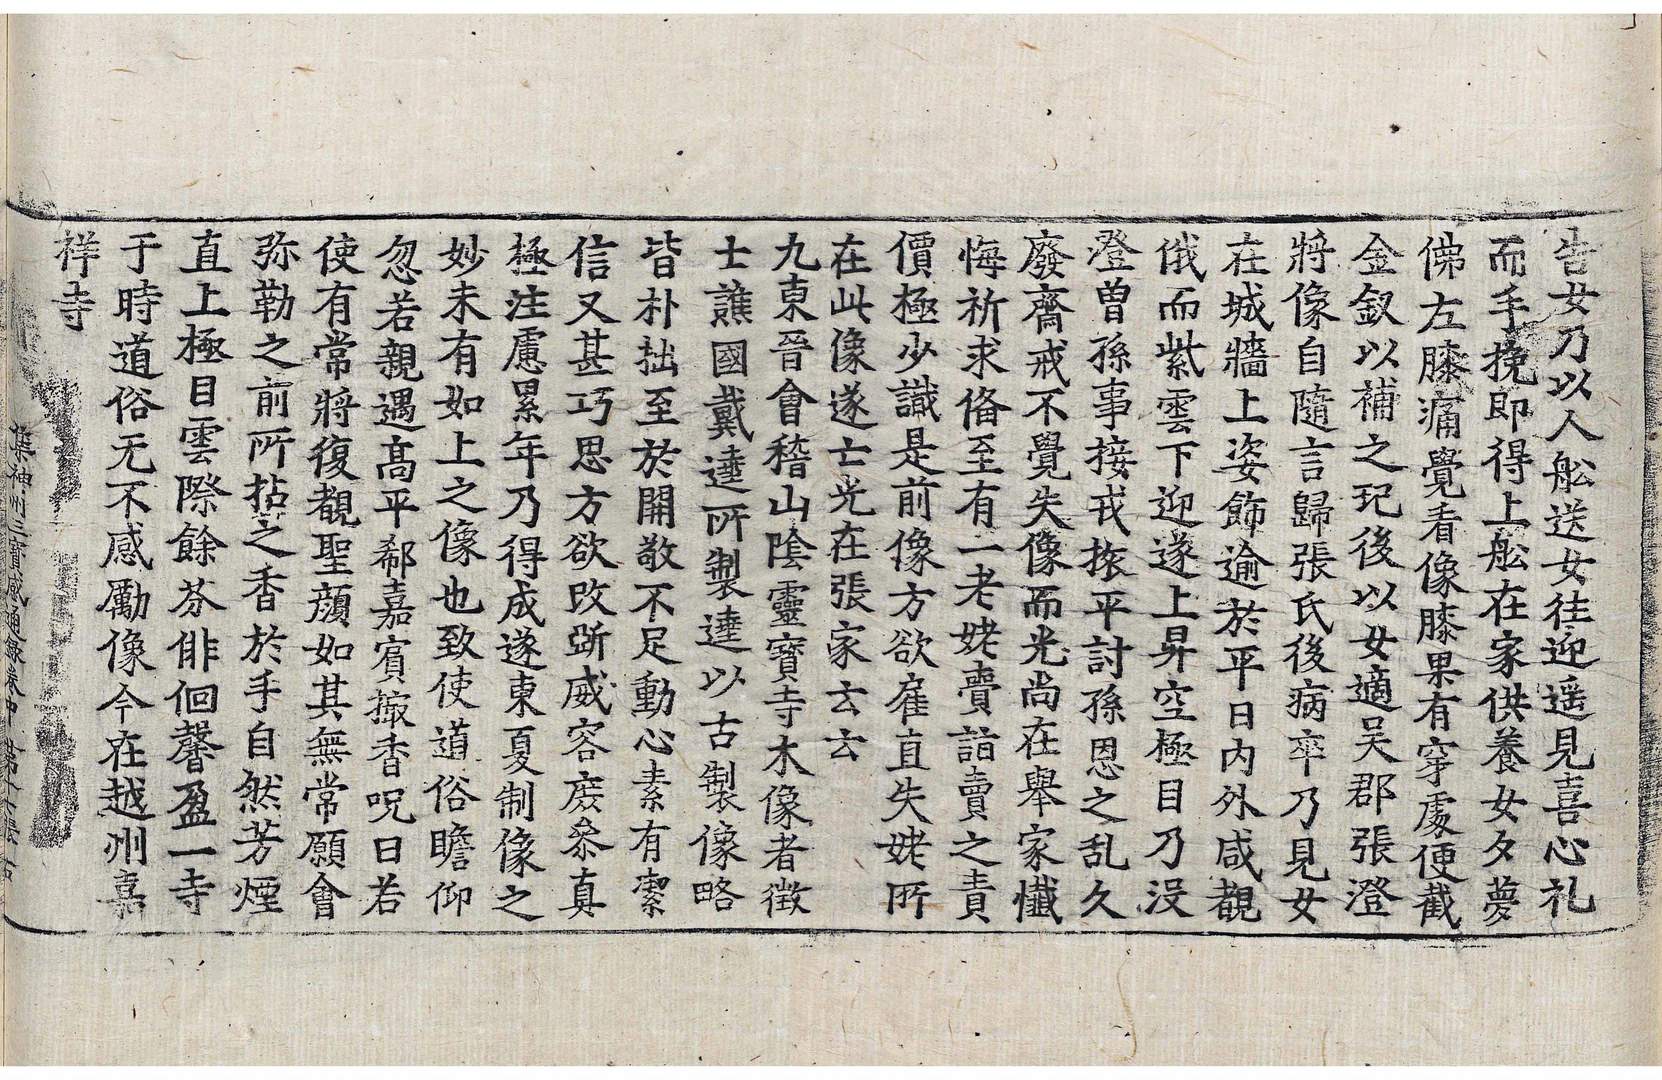 告女乃以人舩送女往迎遥見喜心礼
而手挽即得上舩在家供養女夕夢
佛左膝痛覺看像膝果有穿處便截
金釵以補之玘後以女適吴郡張澄
將像自隨言歸張氏後病卒乃見女
在城牆上姿飾逾於平日内外咸覩
俄而紫雲下迎遂上昇空極目乃没
澄曽孫事接戎振平討孫恩之乱久
廢齋戒不覺失像而光尚在舉家懴
悔祈求俻至有一老姥賷詣賣之責
價極少識是前像方欲雇直失姥所
在此像遂亡光在張家云云
九東晉會稽山隂靈寳寺木像者徴
士譙國戴逵所製逵以古製像略
皆朴拙至於開敬不足動心素有潔
信又甚巧思方欲改斲威容庶叅真
極注慮累年乃得成遂東夏制像之
妙未有如上之像也致使道俗瞻仰
忽若親遇髙平郗嘉賔撮香呪曰若
使有常將復覩聖顔如其無常願會
弥勒之前所拈之香於手自然芳煙
直上極目雲際餘芬俳佪馨盈一寺
于時道俗无不感勵像今在越州嘉
祥寺
集神州三寳感通録卷中 第十七張 右